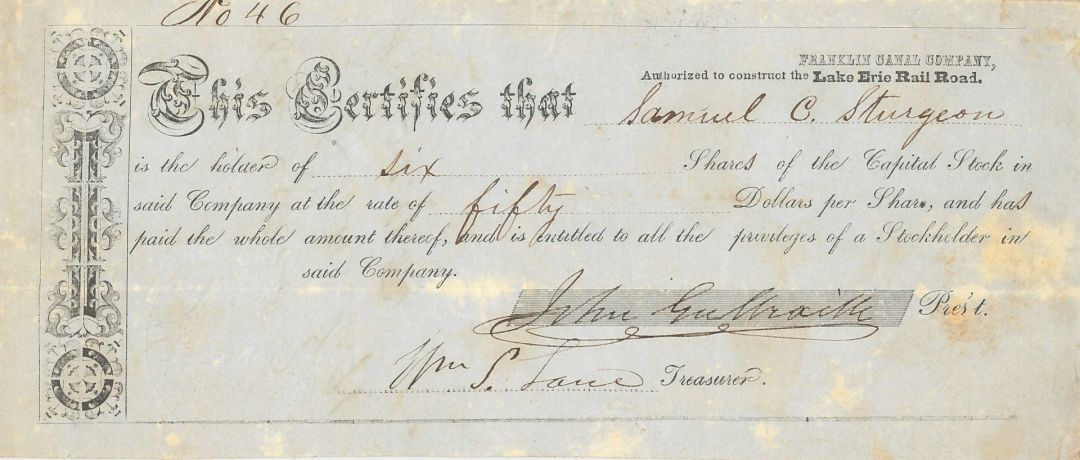 No 46
FRANKLIN CANAL COMPANY,
Authorized to construct the Lake Erie Rail Road.
This Certifies that Samuel C. Sturgeon
is the holder of six Shares of the Capital Stock in
said Company at the rate of fifty Dollars per Share, and has
paid the whole amount thereof, and is entitled to all the privileges of a Stockholder in
said Company.
John Galbraith Pres't.
Wm S. Lane Treasurer.